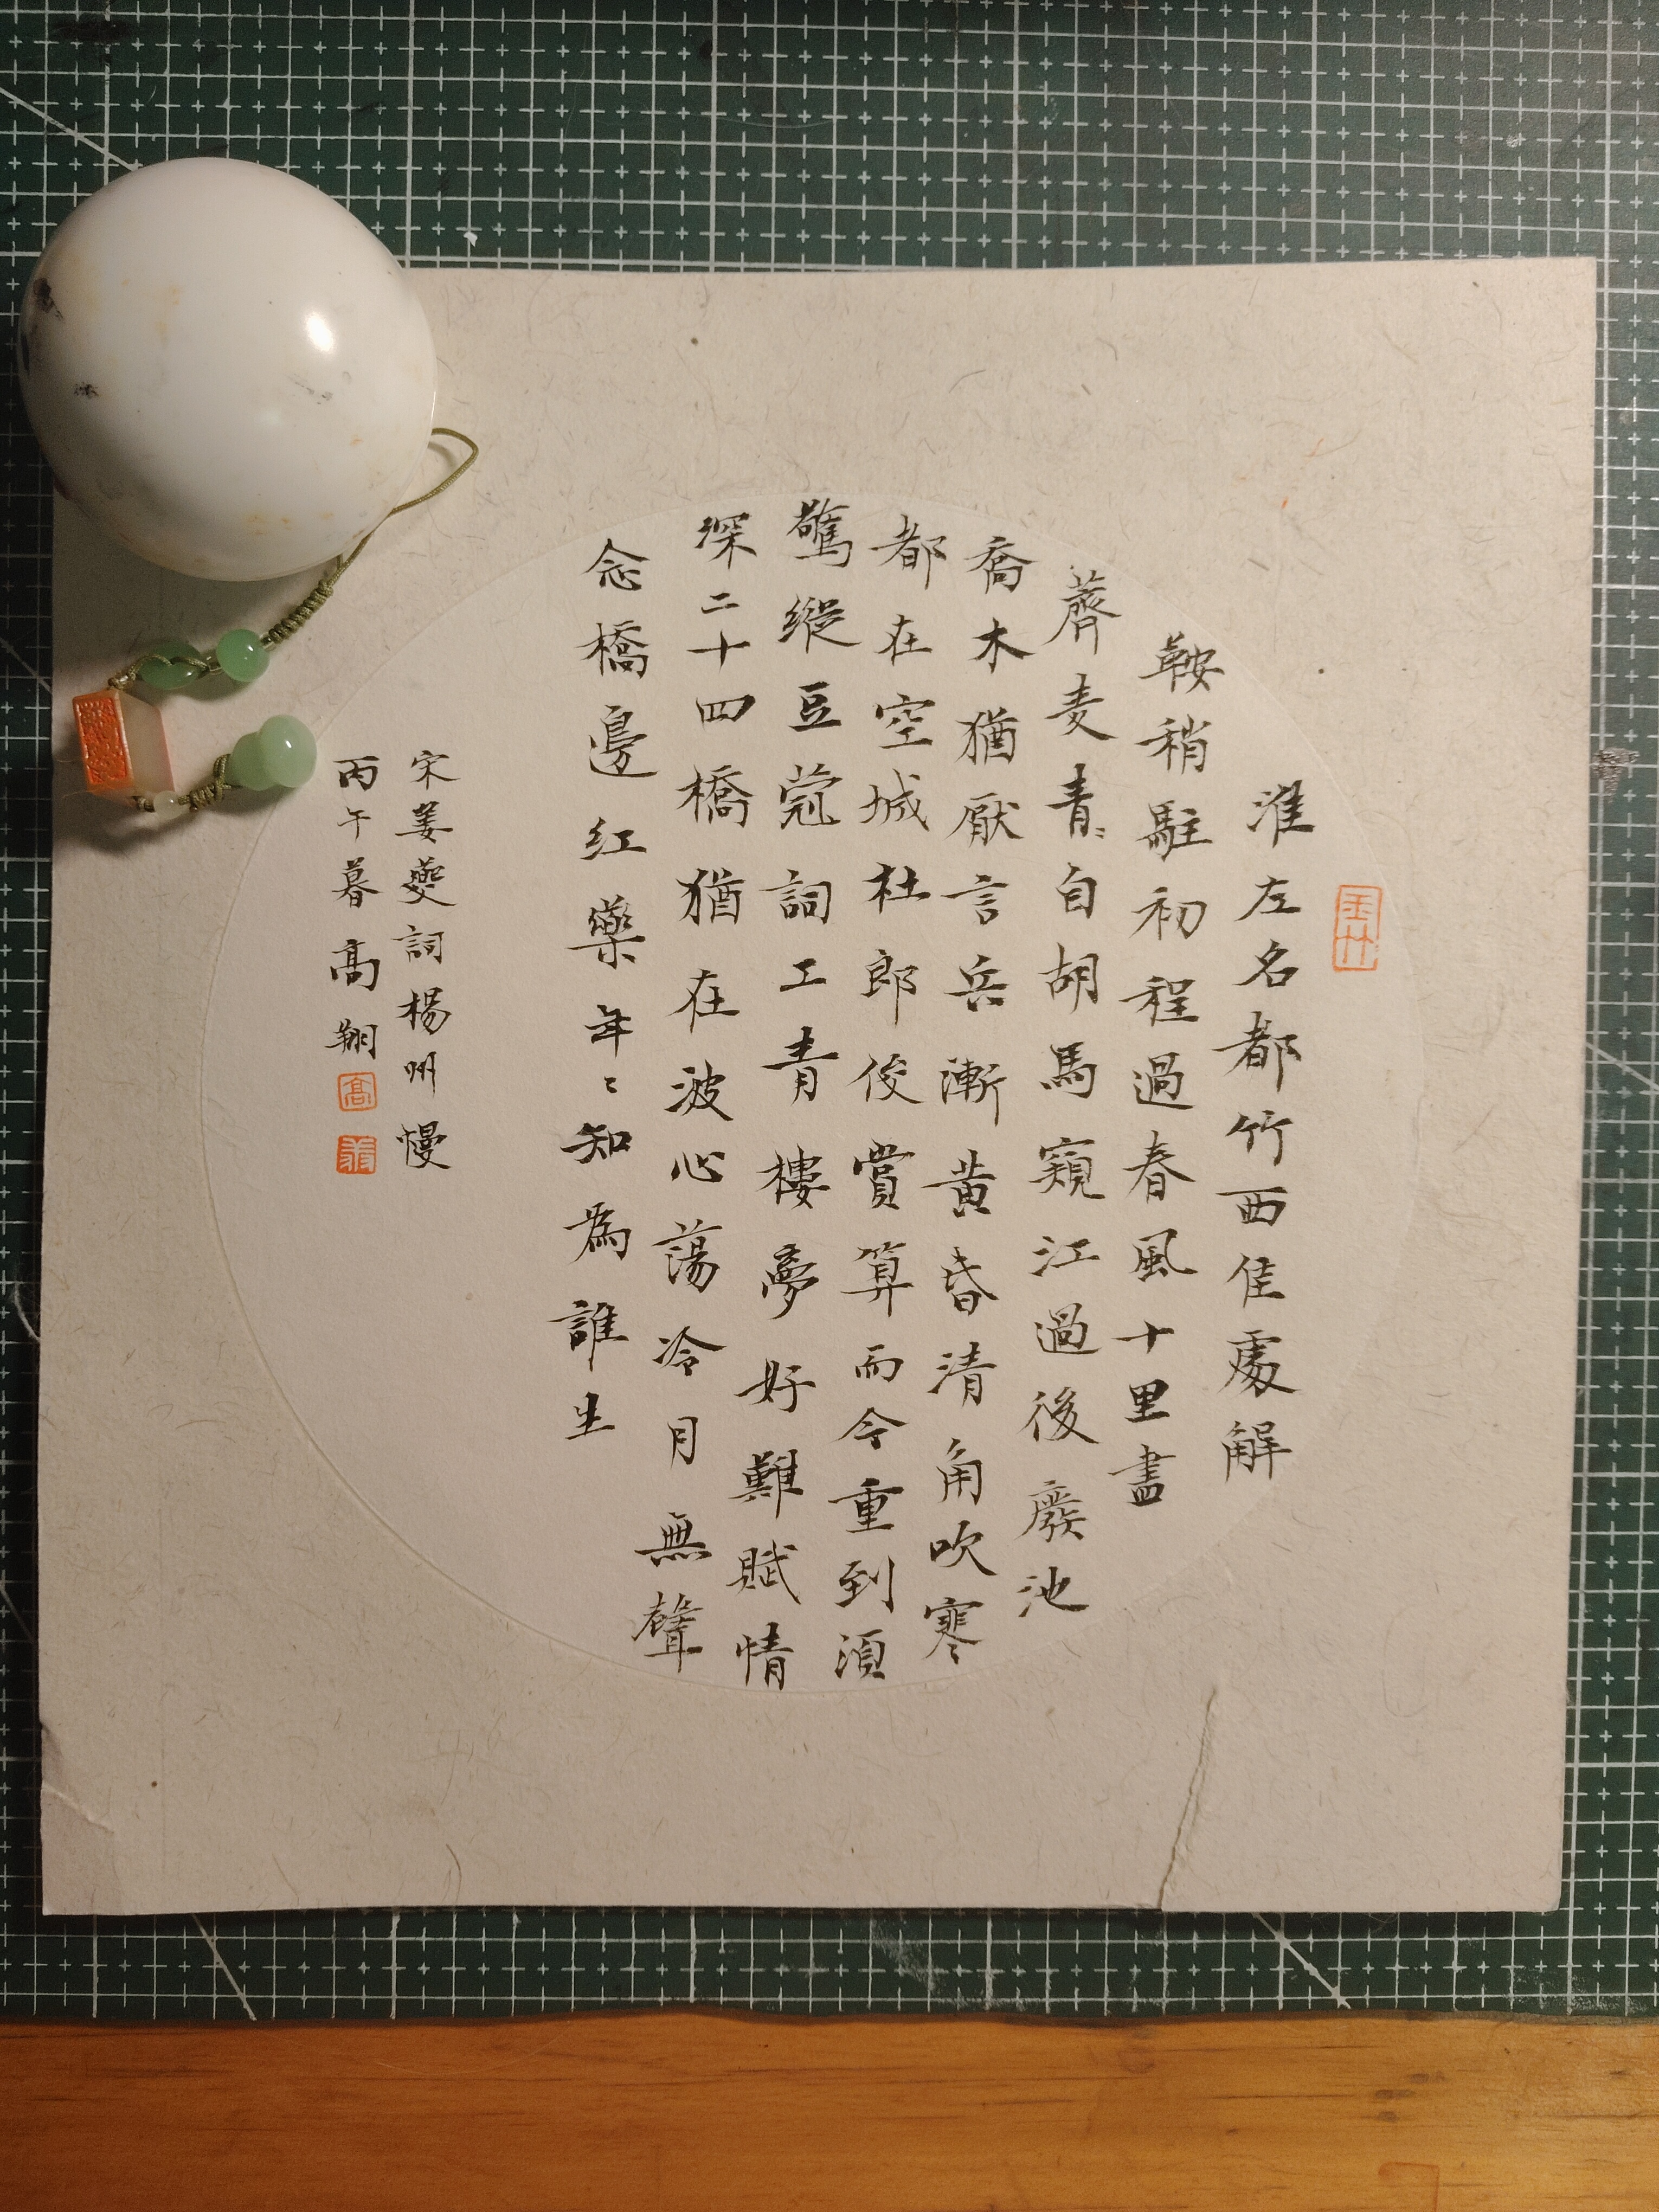 淮左名都竹西佳處解
鞍稍駐初程過春風十里盡
薺麦青〻自胡馬窺江過後廢池
喬木猶厭言兵漸黄昏清角吹寒
都在空城杜郎俊賞算而今重到湏
驚縱豆蒄詞工青樓夢好難賦情
深二十四橋猶在波心蕩冷月無聲
念橋邊红藥年〻知為誰生
宋姜夔詞楊州慢
丙午暮高翔
高
翔